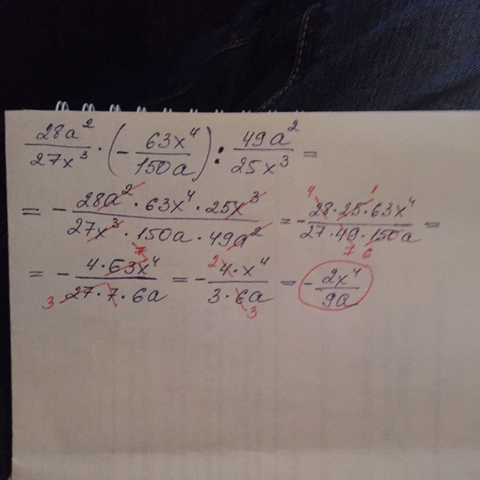 28a²/27x³ · (− 63x⁴/150a) : 49a²/25x³ =
= − 28a² · 63x⁴ · 25x³/27x³ · 150a · 49a² = − 28·25·63x⁴/27·49·150a =
= − 4·63x⁴/27·7·6a = − 4·x⁴/3·6a = − 2x⁴/9a